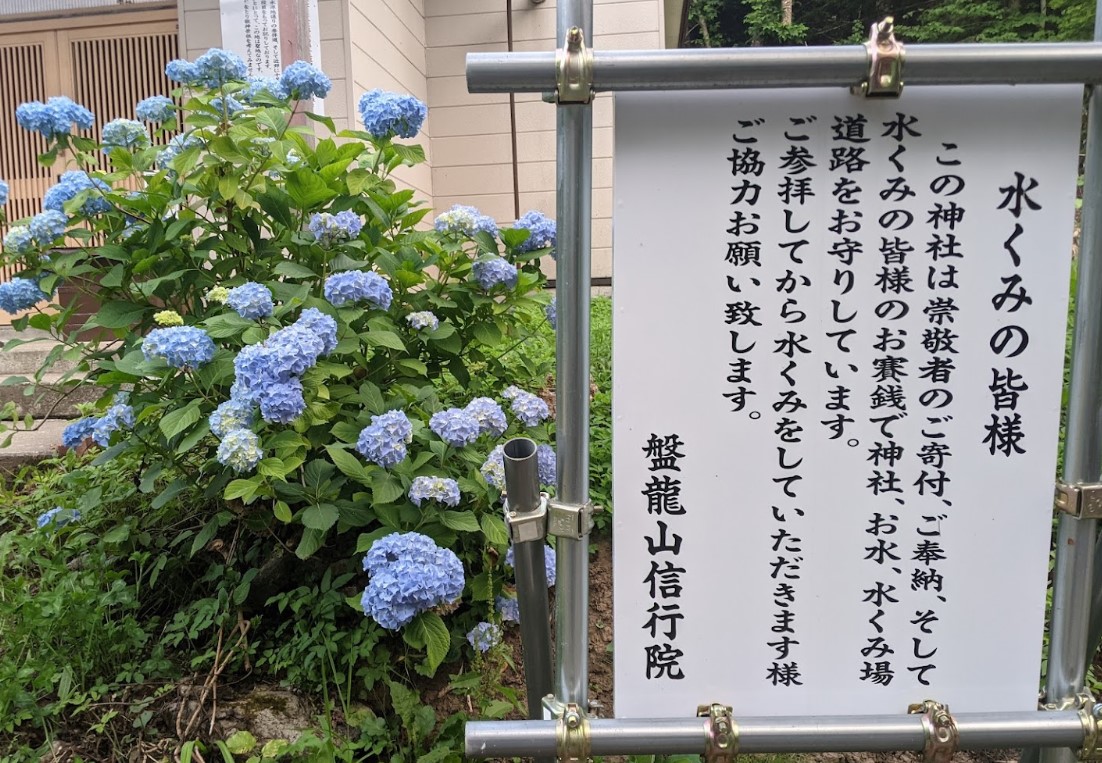 水くみの皆様
この神社は崇敬者のご寄付、ご奉納、そして
水くみの皆様のお賽銭で神社、お水、水くみ場
道路をお守りしています。
ご参拝してから水くみをしていただきます様
ご協力お願い致します。
盤龍山信行院